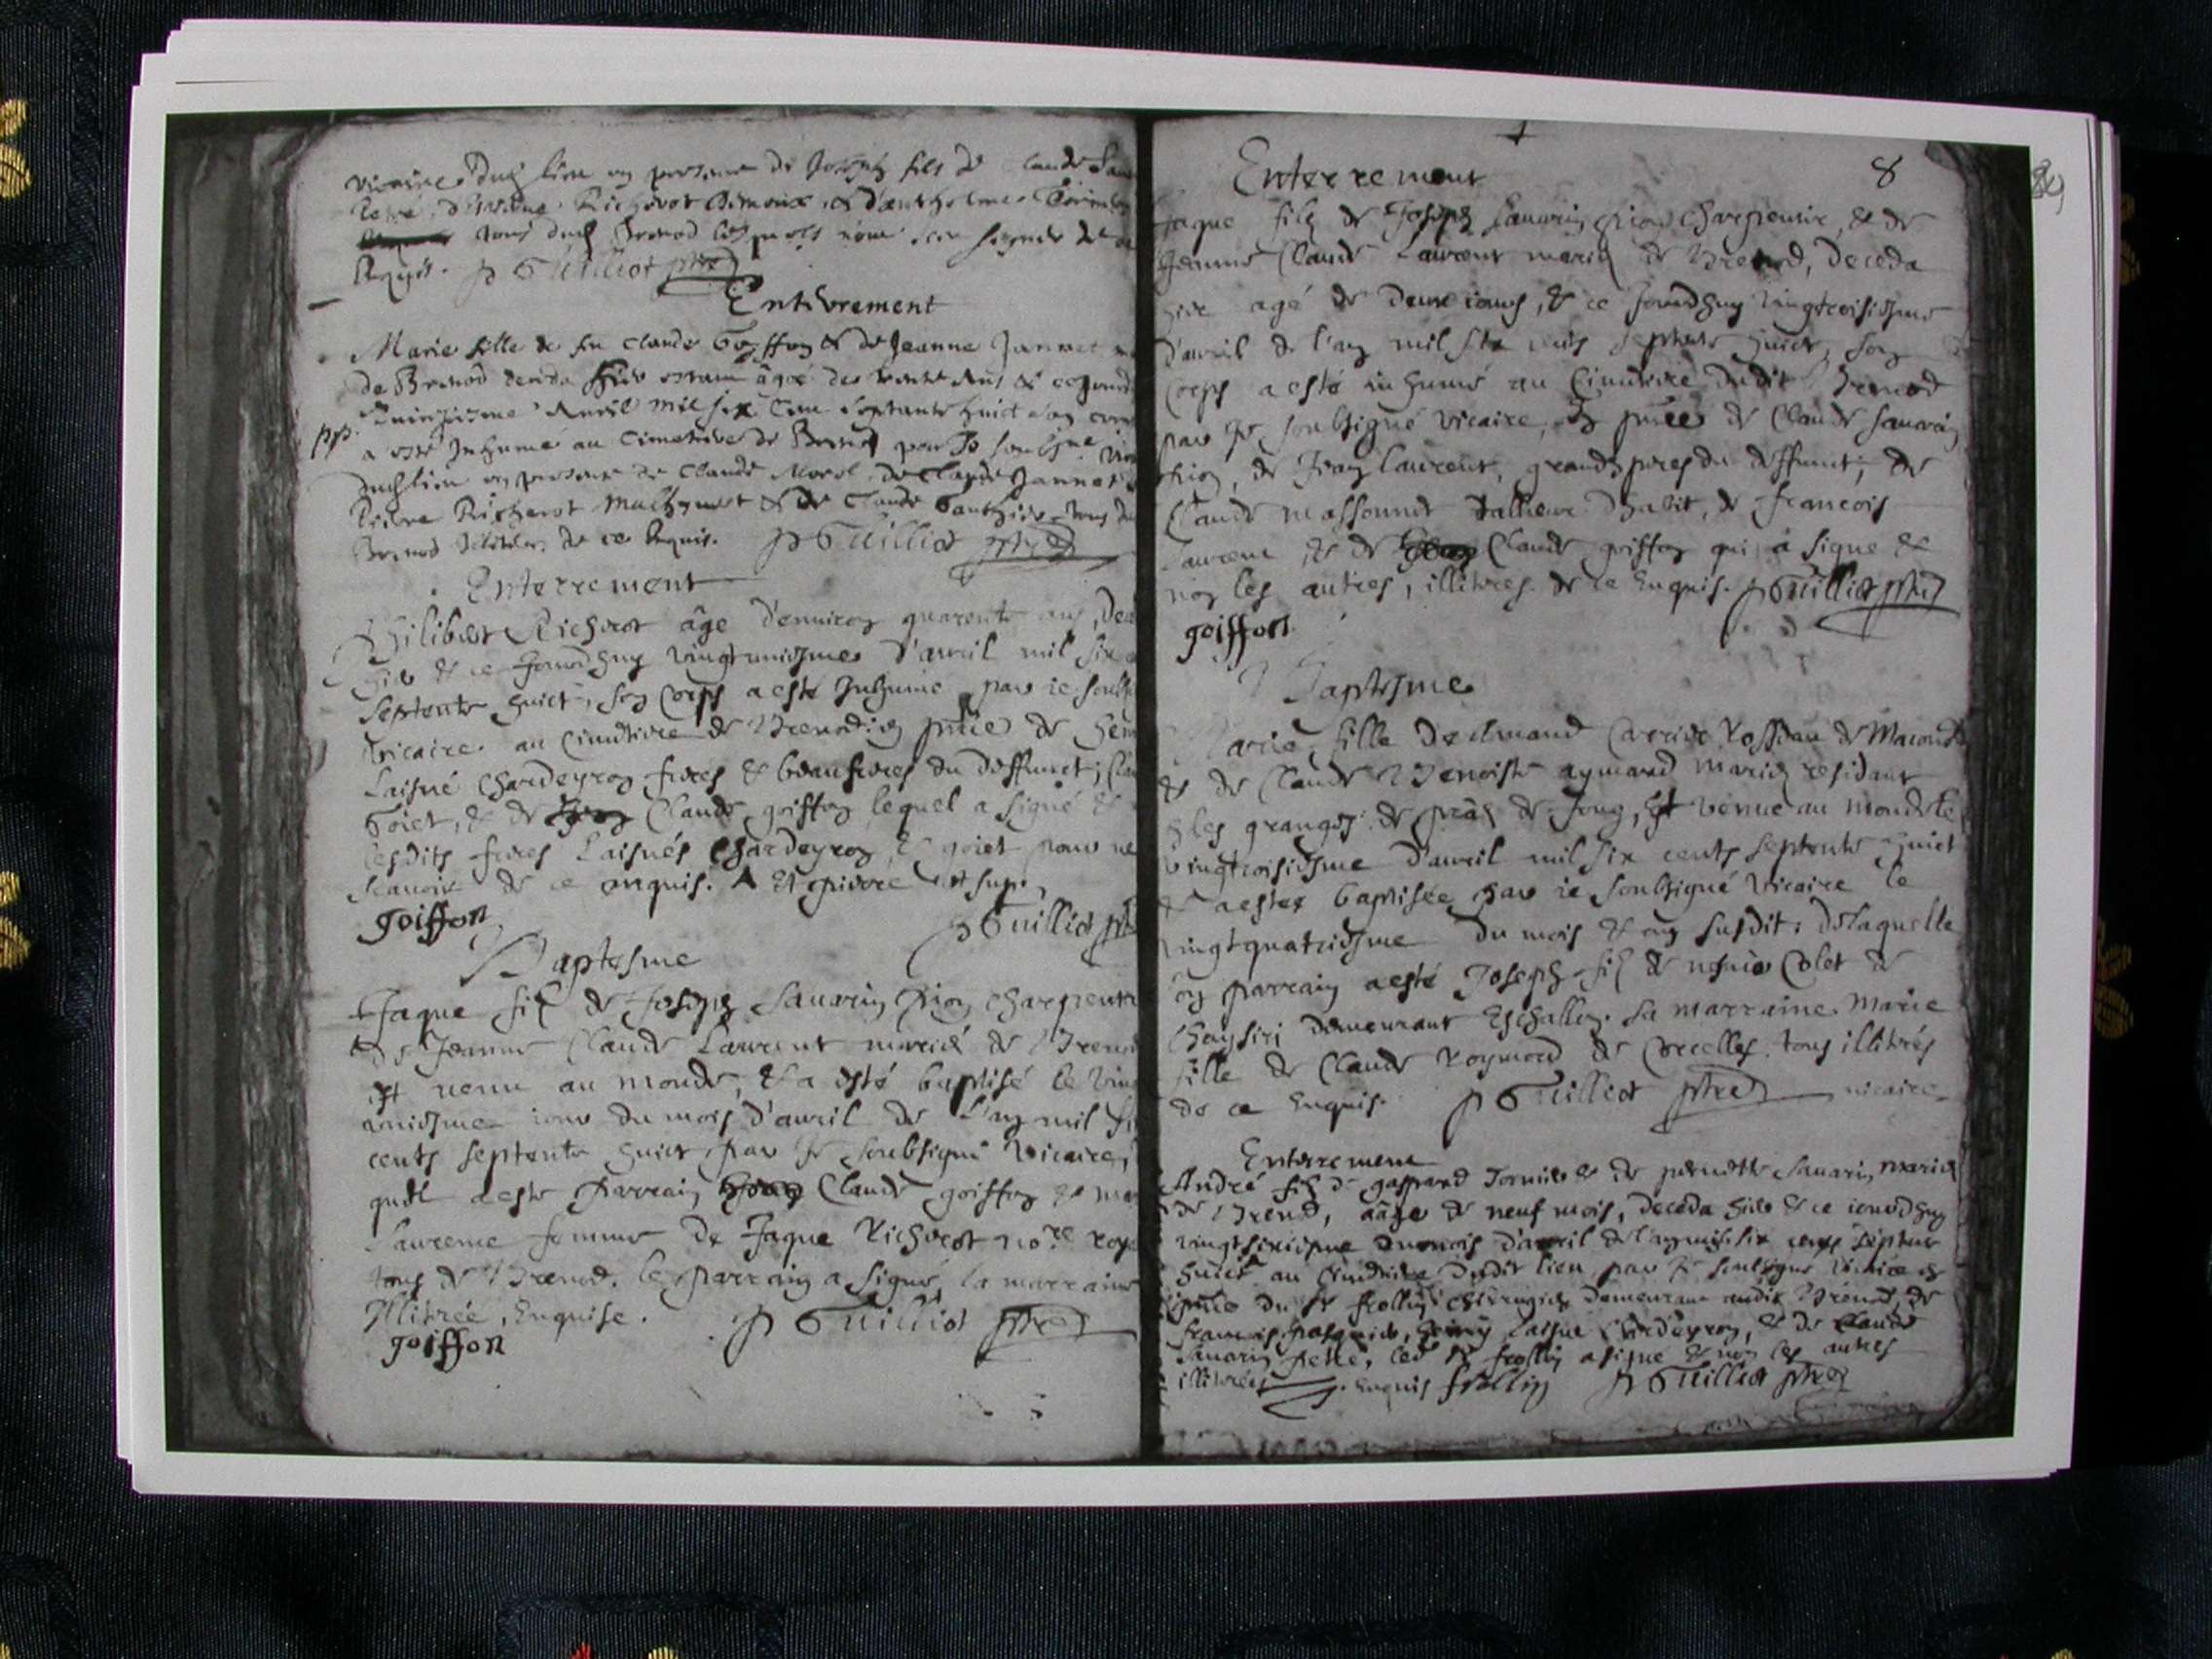 vicaire dud lieu en presence de Joseph fils de Claude
tous dud Brenod lesquels n'ont sceu signer de ce
Requis. p Guilliot ptre
Entervement
Marie fille de feu Claude Goyffon & de Jeanne Jannet
de Brenod deceda hier estant âgée de trente Ans & ce jourd
quinziesme Avril mil six cent septante huict son corps
pp.
a esté Inhumé au Cimetiere de Brenod par Je soubsigné vic
dud lieu en presence de Claude Morel, de Claude Jannet
Pierre Richerot & de Claude Gauthier tous de
Brenod Illitérés de ce Requis. p Guilliot ptre
Enterrement
Philibert Richerot âge d'environ quarente ans, dece
hier & ce jourd'huy vingtuniesme d'avril mil six c
septente huict, son corps a esté Inhumé par ie soubs
vicaire au cimetiere de Brenod; en pñce de
Laisné Chardeyron freres & beaufreres du deffunct; Clau
Goiet, & de Claude goiffon lequel a signé &
lesdits freres Laisnés Chardeyron, & goiet pour ne
scavoir de ce enquis.
goiffon p Guilliot ptre
Baptesme
Jaque fil de Joseph Savarin Pion charpentie
& de Jeanne Claude Laurent mariés de Brenod
est venu au monde, & a esté baptisé le vingt
uniesme iour du mois d'avril de l'an mil six
cents septente huict, par Je soubsigné vicaire,
quel a esté Parrain Claude goiffon & mar
Laurence femme de Jaque Richerot no.re roya
tous de Brenod. le parrain a signé, la marraine
Illitrée, Enquise. p Guilliot ptre
goiffon
8
Enterrement
Jaque filz de Joseph Savarin Pion Charpentie, & de
Jeanne Claude Laurent mariés de Brenod, deceda
hier agé de deux iours, & ce jourd'huy vingtroisiesme
d'avril de l'an mil six cents septente huict, son
corps a esté inhumé au Cimetiere dudit Brenod
par Je soubsigné vicaire, en pñce de Claude Savarin
Pion, de Jean Laurent, grands peres du deffunct; de
Claude massonnet tallieur d'habit, de francois
Laurent & de Claude goiffon qui a signé &
non les autres, illitrés de ce Enquis. p Guilliot ptre
goiffon
Baptesme
Marie, fille de Amand Carrier Rosseau
& de Claude Benoiste aymard mariés residant
es granges de prés de Joug, est venue au monde le
vingtroisiesme d'avril mil six cents septente huict
& a estée baptisée par ie soubsigné vicaire le
vingtquatriesme du mois & an susdit: de laquelle
en parrain a esté Joseph fil de Colet de
demeurant Eschallon. La marraine Marie
fille de Claude Reymond de Corcelles. tous illitrés
de ce Enquis. p Guilliot ptre vicaire
Enterrement
André fil de gaspard Tornier & de pernette Savarin mariés
de Brenod, aâge de neuf mois, deceda hier & ce iourdhuy
vingtsixiesme du mois d'avril de l'an mil six cents septente
huict au Cimetiere dudit lieu par Je soubsigné vicaire en
pñce du Sr frollin chirurgien demeurant audit Brenod, de
francois pasquier, Laisné Chardeyron, & de Claude
Savarin, led Sr frollin a signé & non les autres
illitrés Enquis frollin p Guilliot ptre